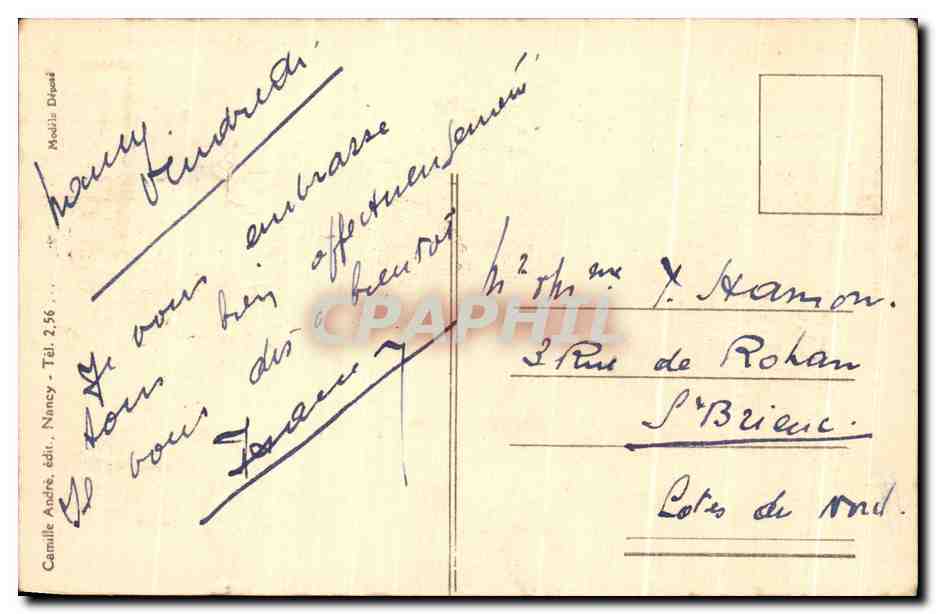 Nancy
Vendredi
Je vous embrasse
tous bien affectueusement
Je vous dis à bientôt
Mr et Mme Hamon.
3 Rue de Rohan
St Brieuc.
Cotes du Nord.
Camille André, édit., Nancy - Tél. 2.56 ...
Modèle Déposé
CPAPHIL